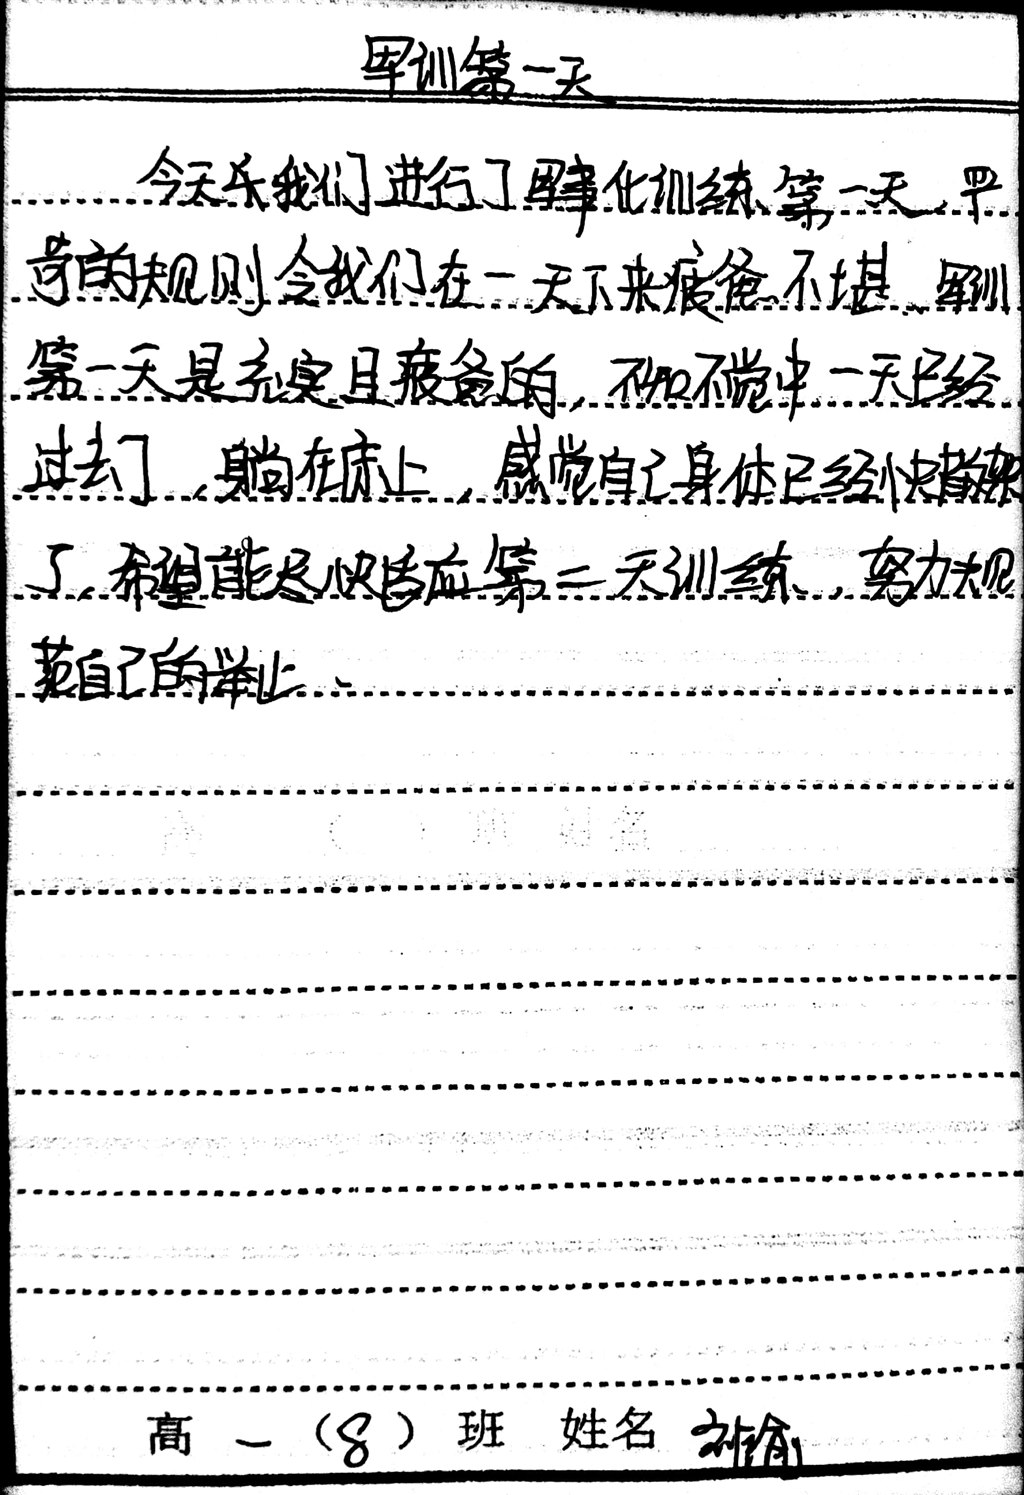 军训第一天
今天乐我们进行了军事化训练第一天,
苛的规则令我们在一天下来疲惫不堪、军训
第一天是充实且疲惫的,不知不觉中一天已经
过去了,躺在床上,感觉自己身体已经快散架
了、希望能尽快适应第二天训练、,努力规
范自己的举止、
高一(8)班 姓名